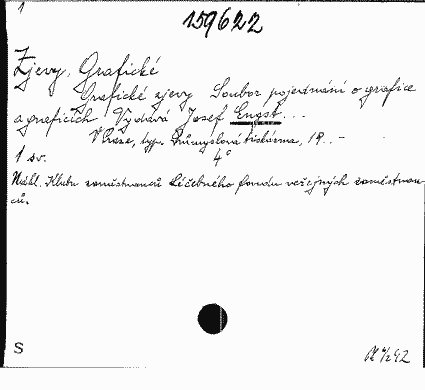 1
159622
Zjevy, Grafické
Grafické zjevy Soubor pojednání o grafice
a graficích Vydává Josef Engst...
V Praze, typ. Průmyslová tiskárna, 19..-
1 sv. 4°
Nákl. Klubu zaměstnanců Léčebného fondu veřejných zaměstnan-
ců.
S